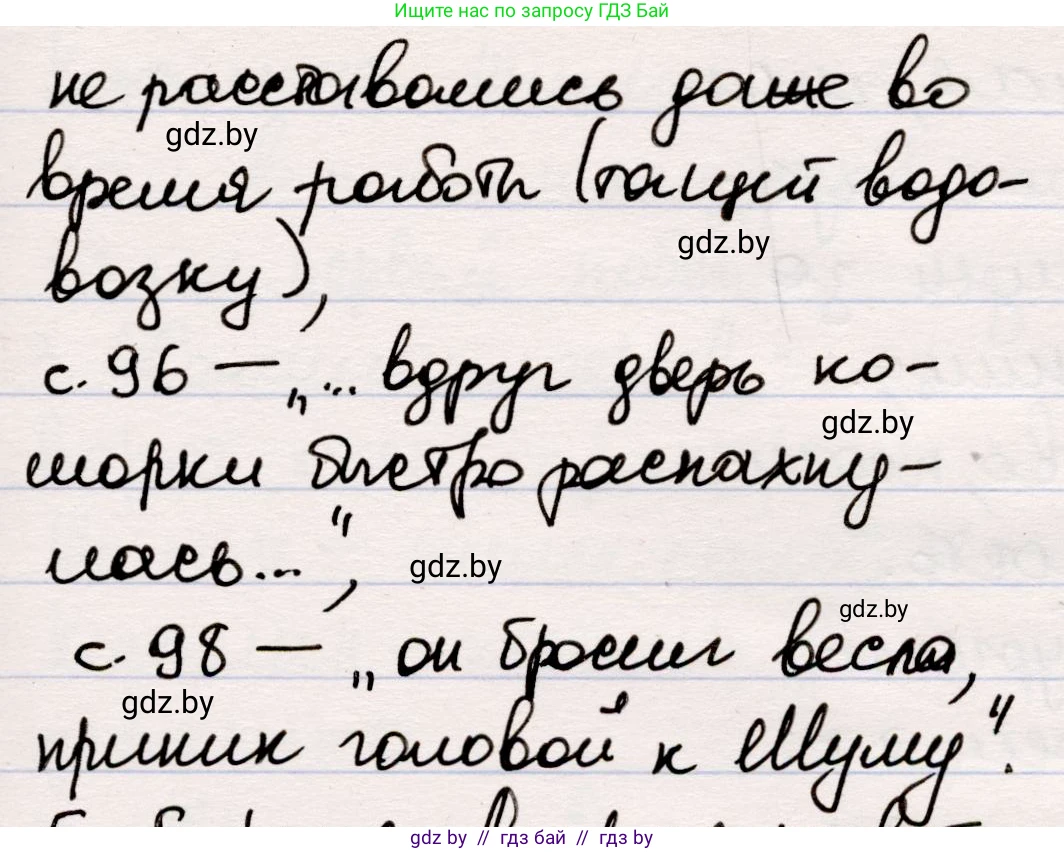 Ищите нас по запросу ГДЗ Бай
не расставались даже во
gdz.by
время работы (тащит водо-
gdz.by
возку),
с. 96 — „... вдруг дверь ко-
gdz.by
морки быстро распахну-
лась...",
gdz.by
gdz.by
с. 98 — „он бросил весла,
gdz.by
приник головой к Шуму".
gdz by // гдз бай // гdz by